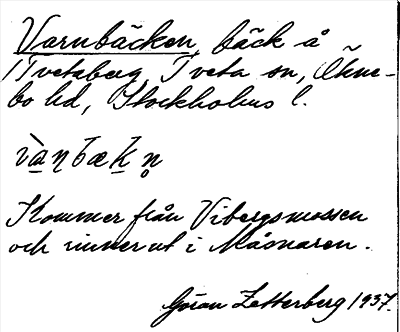 Varnbäcken, bäck å
Tvetaberg, Tveta sn, Ökne-
bo hd, Stockholms l.
Kommer från Vibergsmossen
och rinner ut i Måsnaren.
Göran Zetterberg 1937.